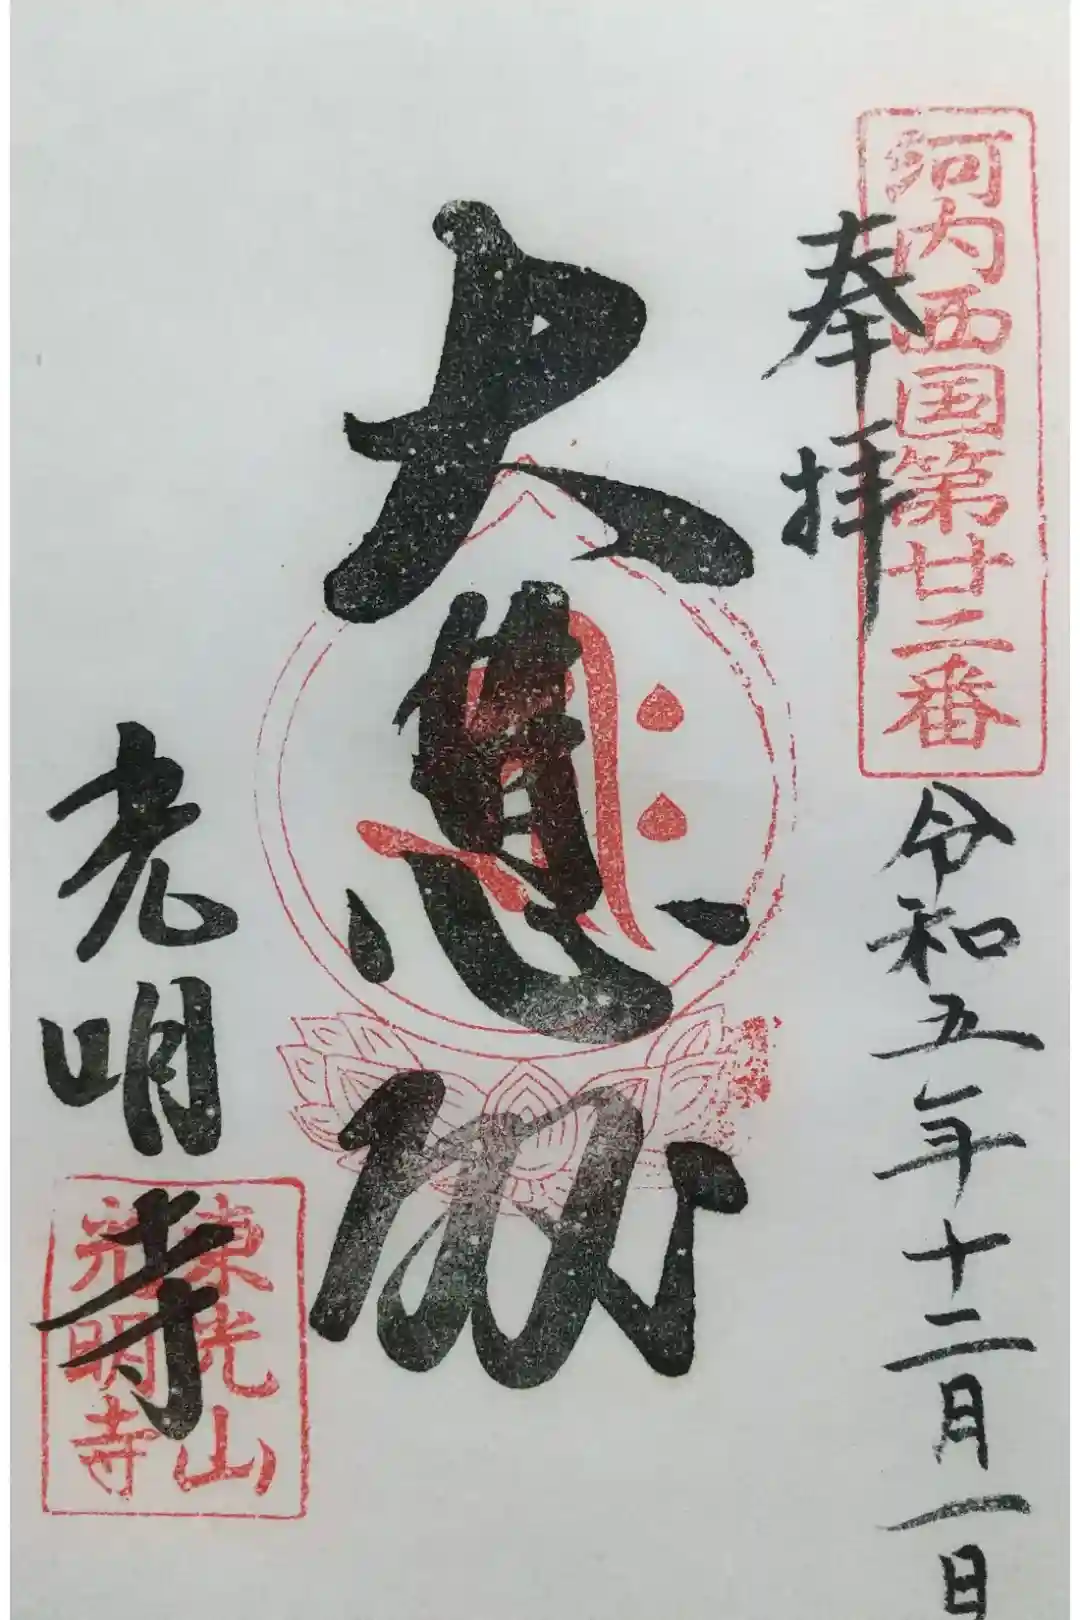 河内西国第廿二番
奉拝
令和五年十二月一日
大悲
光明寺
東光山
光明寺